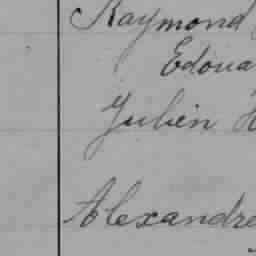 Raymond
Edoua
Julien H
Alexandre